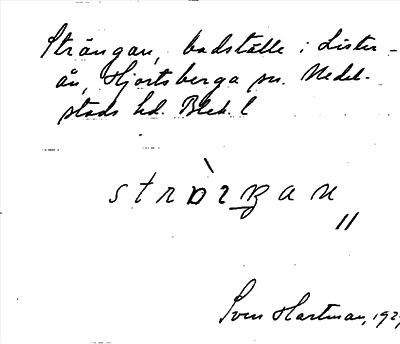 Strängan, badställe i Lister-
ån, Hjortsberga sn. Medel-
stads hd. Blek. l
Sven Hartman, 192